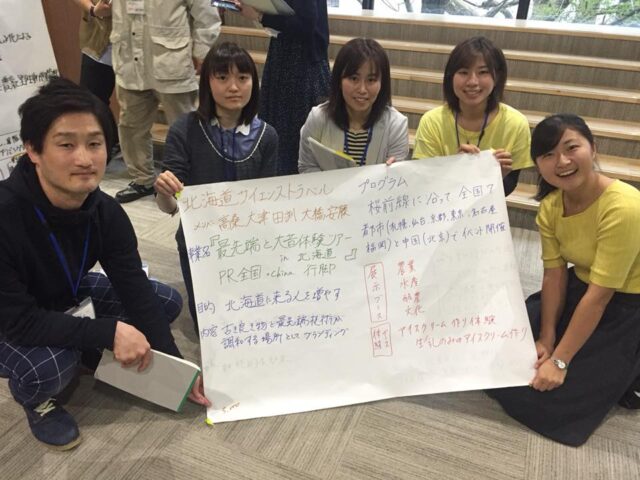 北海道サイエンストラベル
メンバー 高桑 大津 田制 大橋 安展
事業名『最先端と大昔体験ツアー
in 北海道 』
PR全国・China 行脚
目的 北海道に来る人を増やす
内容 古き良き物と最先端技術が
調和する場所としてブランディング
プログラム
桜前線に沿って 全国7
都市(札幌、仙台、京都、東京、名古屋
福岡)と中国(北京)でイベント開催
展示ブース
農業
水産
酪農
文化
アイスクリーム作り体験
生乳のみのアイスクリーム作り